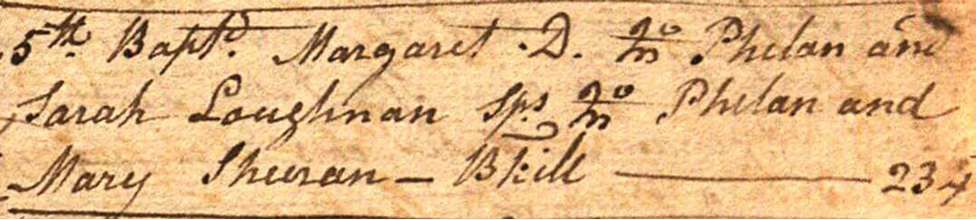 5th Bapt.d Margaret D. Jno Phelan and
Sarah Loughnan Sps. Jno Phelan and
Mary Sheeran - Bkill 234